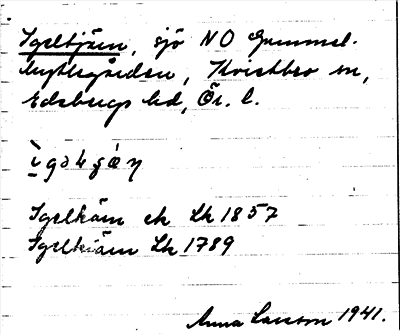 Igeltjärn, sjö NO Gammel-
hyttegården, Kvistbro sn,
Edsbergs hd, Ör. l.
Igeltiärn ek Lk 1857
Igeltiärn Lk 1789
Anna Larsson 1941.